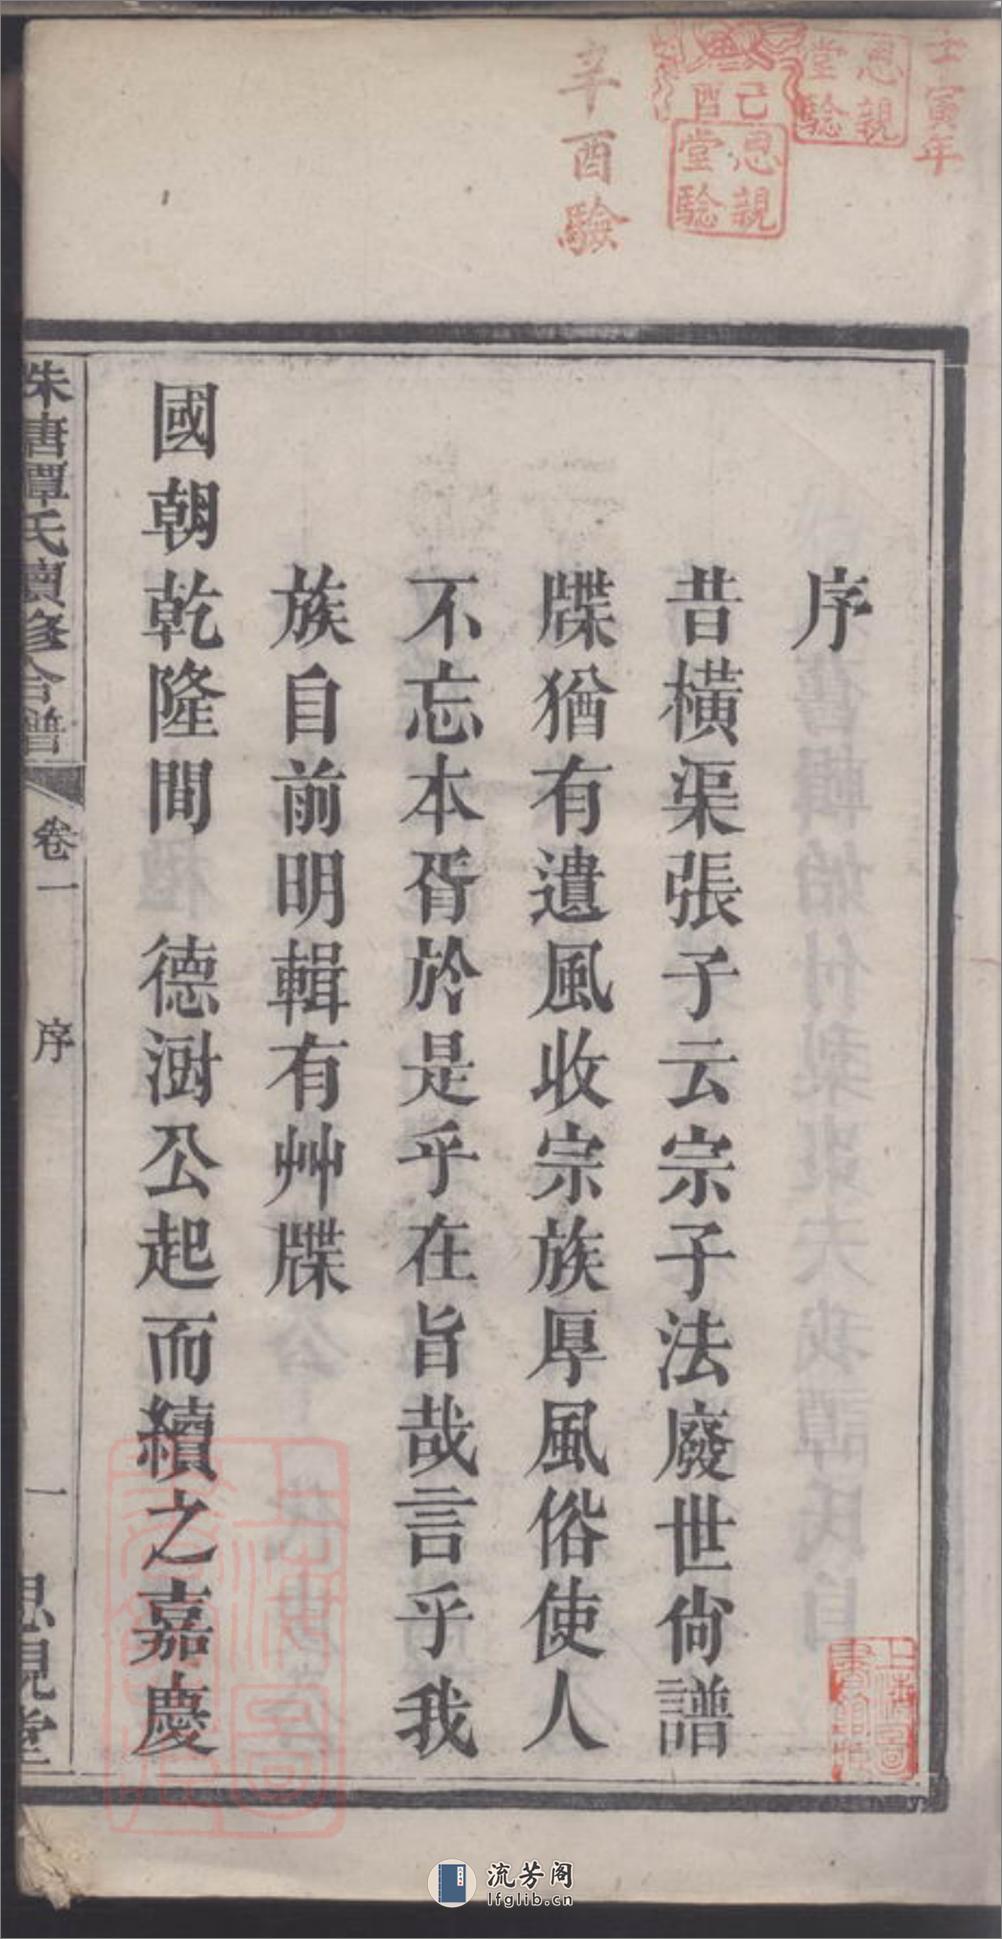 壬寅年
恩親
堂驗
己酉
恩親
堂驗
辛酉驗
序
昔橫渠張子云宗子法廢世尙譜
牒猶有遺風收宗族厚風俗使人
不忘本胥於是乎在旨哉言乎我
族自前明輯有艸牒
國朝乾隆間 德澍公起而續之嘉慶
珠唐譚氏續修合譜
卷一
序
一
思親堂
上海圖
書館藏
流芳阁
lfglib.cn